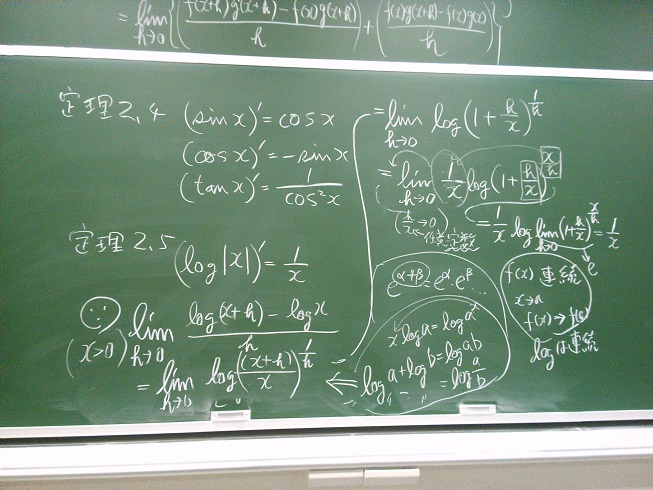 = lim h→0 { (f(x+h)g(x+h) - f(x)g(x+h))/h + (f(x)g(x+h) - f(x)g(x))/h }
定理2.4 (sin x)' = cos x
(cos x)' = -sin x
(tan x)' = 1/cos²x
定理2.5
(log|x|)' = 1/x
(x>0) lim h→0 (log(x+h) - log x)/h
= lim h→0 log((x+h)/x)^1/h
= lim h→0 log(1 + h/x)^1/h
= lim h→0 1/x log(1 + h/x)^x/h
(h/x→0)
= 1/x log lim h→0 (1+h/x)^x/h = 1/x
e
e^α+β = e^α·e^β ...
x log a = log a^x
log a + log b = log ab
log " - " = log a/b
f(x) 連続
x→a
f(x)→f(a)
logは連続